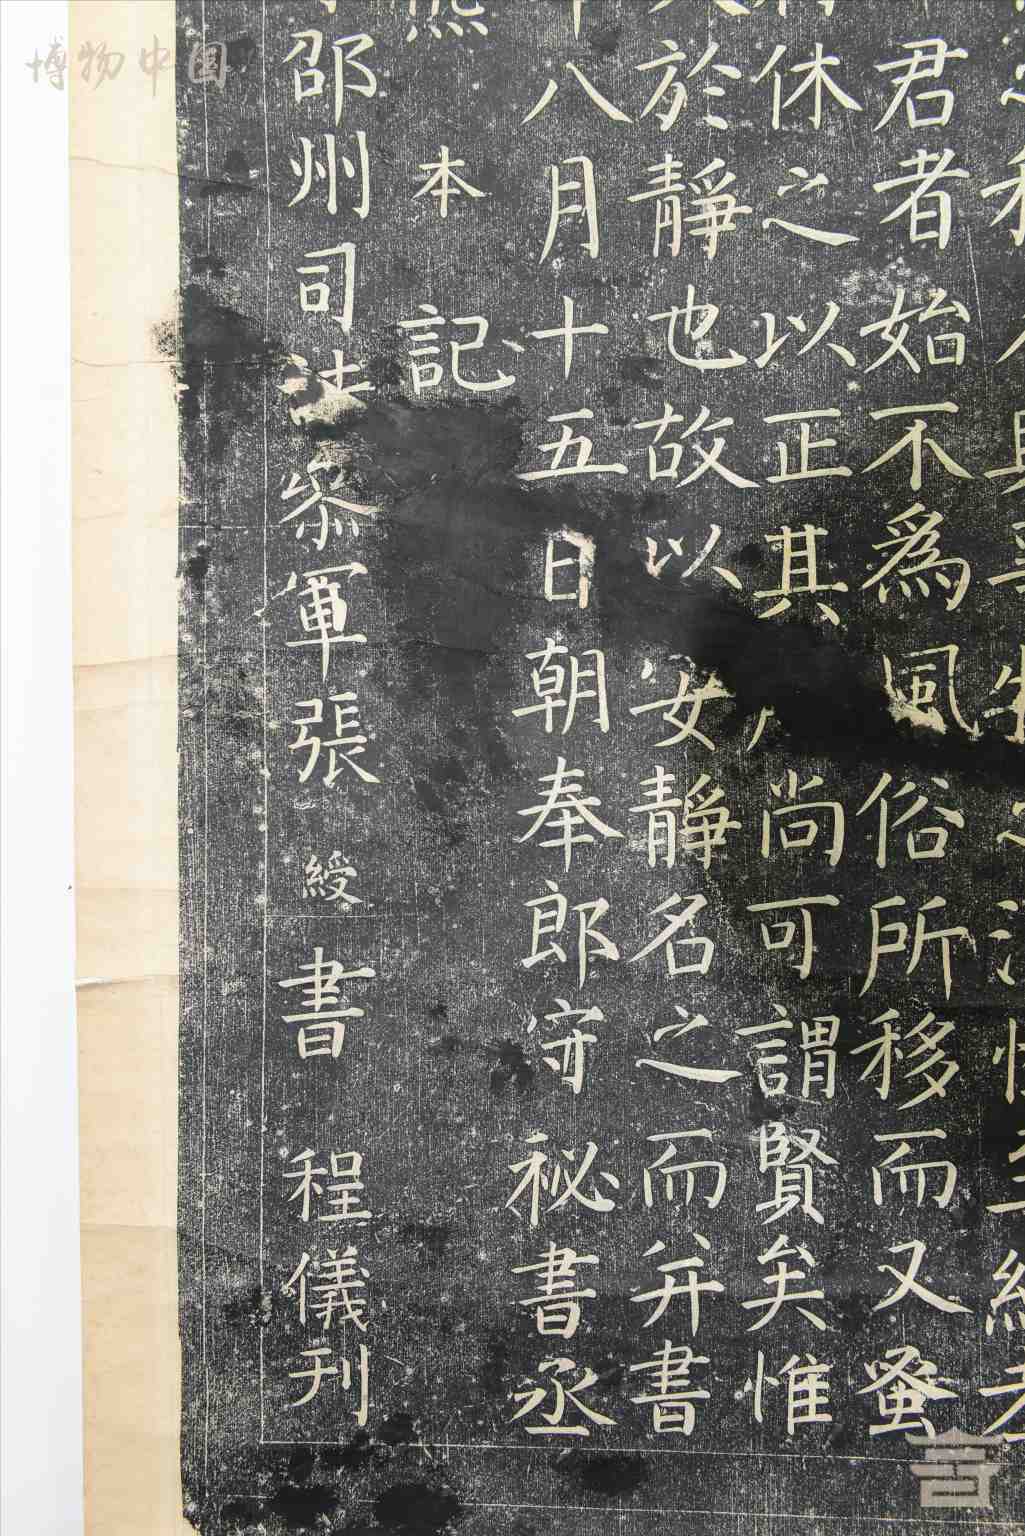 君者始不爲風俗所移而又蚤
休之以正其尚可謂賢矣惟
於靜也故以安靜名之而并書
八月十五日朝奉郎守祕書丞
熊本記
邵州司法參軍張綬書 程儀刊
博物中国